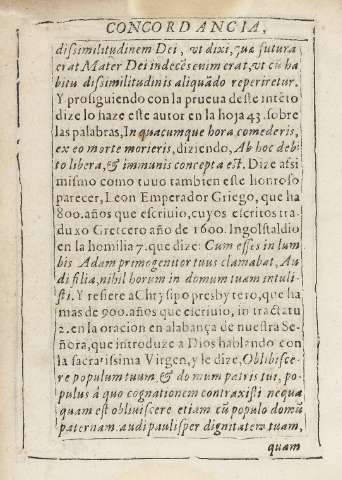 CONCORDANCIA,
dissimilitudinem Dei, vt dixi, quæ futura
erat Mater Dei indecēs enim erat, vt cū ha
bitu dissimilitudinis aliquādo reperiretur.
Y prosiguiendo con la prueua deste intēto
dize lo haze este autor en la hoja 43. sobre
las palabras, In quacumque hora comederis,
ex eo morte morieris, diziendo, Ab hoc debi-
to libera, & immunis concepta est. Dize assi
mismo como tuuo tambien este honroso
parecer, Leon Emperador Griego, que ha
800. años que escriuio, cuyos escritos tra-
duxo Gretcero año de 1600. Ingolstaldio
en la homilia 7. que dize: Cum esses in lum
bis Adam primogenitor tuus clamabat, Au
di filia, nihil horum in domum tuam intuli-
sti. Y refiere à Chrysipo presbytero, que ha
mas de 900. años que escriuio, in tractatu
2. en la oracion en alabança de nuestra Se-
ñora, que introduze a Dios hablando con
la sacratissima Virgen, y le dize, Obliuisce-
re populum tuum & domum patris tui, po-
pulus á quo cognationem contraxisti nequa
quam est obliuiscere etiam cū populo domū
paternam. audi paulisper dignitatem tuam,
quam